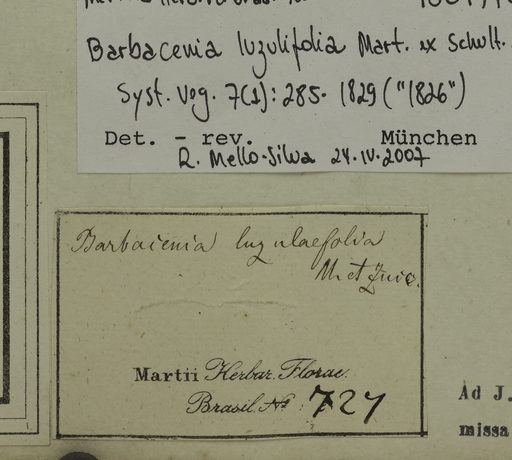 Barbacenia luzulifolia Mart. ex Schult.
Syst. Veg. 7(1): 285. 1829 ("1826")
Det. – rev. München
R. Mello-Silva 24.IV.2007
Barbacenia luzulaefolia
M et Zucc.
Martii Herbar. Florae
Brasil. No: 727
Ad J.
missa